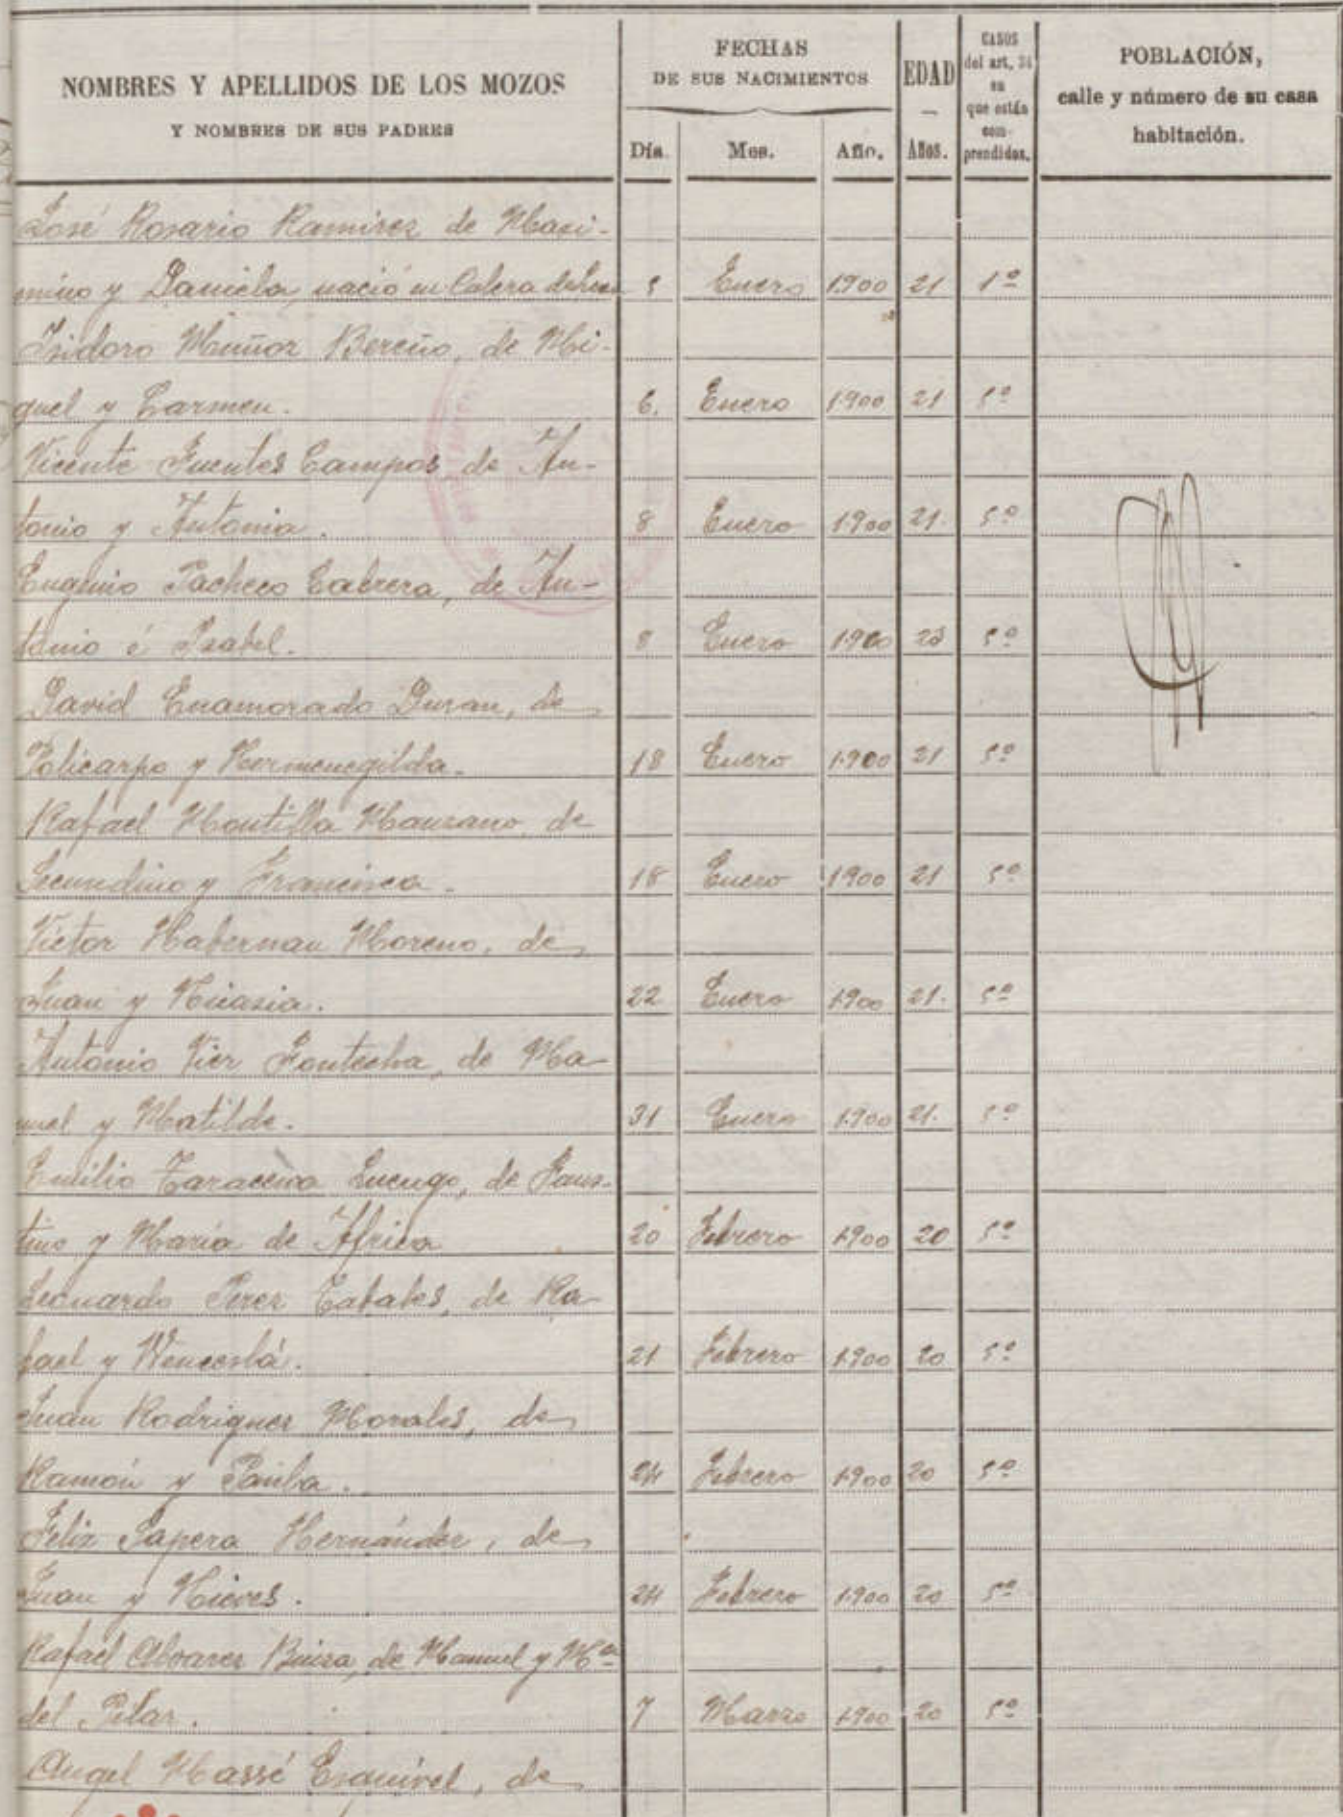 NOMBRES Y APELLIDOS DE LOS MOZOS
Y NOMBRES DE SUS PADRES
FECHAS
DE SUS NACIMIENTOS
Día. Mes. Año.
EDAD
—
Años.
CASOS
del art. 34
en
que están
com-
prendidos.
POBLACIÓN,
calle y número de su casa
habitación.
José Rosario Ramirez de Maxi-
mino y Daniela, nació en Calera de 5 Enero 1900 21 1º
Isidoro Muñoz Bereño, de Mi-
guel y Carmen. 6. Enero 1900 21 5º
Vicente Fuentes Campos de An-
tonio y Antonia. 8 Enero 1900 21. 5º
Eugenio Pacheco Cabrera, de An-
tonio é Isabel. 8 Enero 1900 5º
David Enamorado Duran, de
Policarpo y Hermenegilda. 18 Enero 1900 21 5º
Rafael Montilla Manzano, de
Secundino y Francisca. 18 Enero 1900 21 5º
Victor Habernau Moreno, de
Juan y Nicasia. 22 Enero 1900 21. 5º
Antonio Vier Fontecha, de Ma-
nuel y Matilde. 31 Enero 1900 21. 5º
Emilio Taracena Luengo, de Faus-
tino y Maria de Africa 20 Febrero 1900 20 5º
Leonardo Perez Cabales, de Ra-
fael y Wenceslá. 21 Febrero 1900 20 5º
Juan Rodriguez Morales, de
Ramón y Paula. 24 Febrero 1900 20 5º
Feliz Sapera Hernández, de
Juan y Nieves. 24 Febrero 1900 20 5º
Rafael Alvarez Buiza, de Manuel y Mª
del Pilar. 7 Marzo 1900 20 5º
Angel Massé Esquivel, de